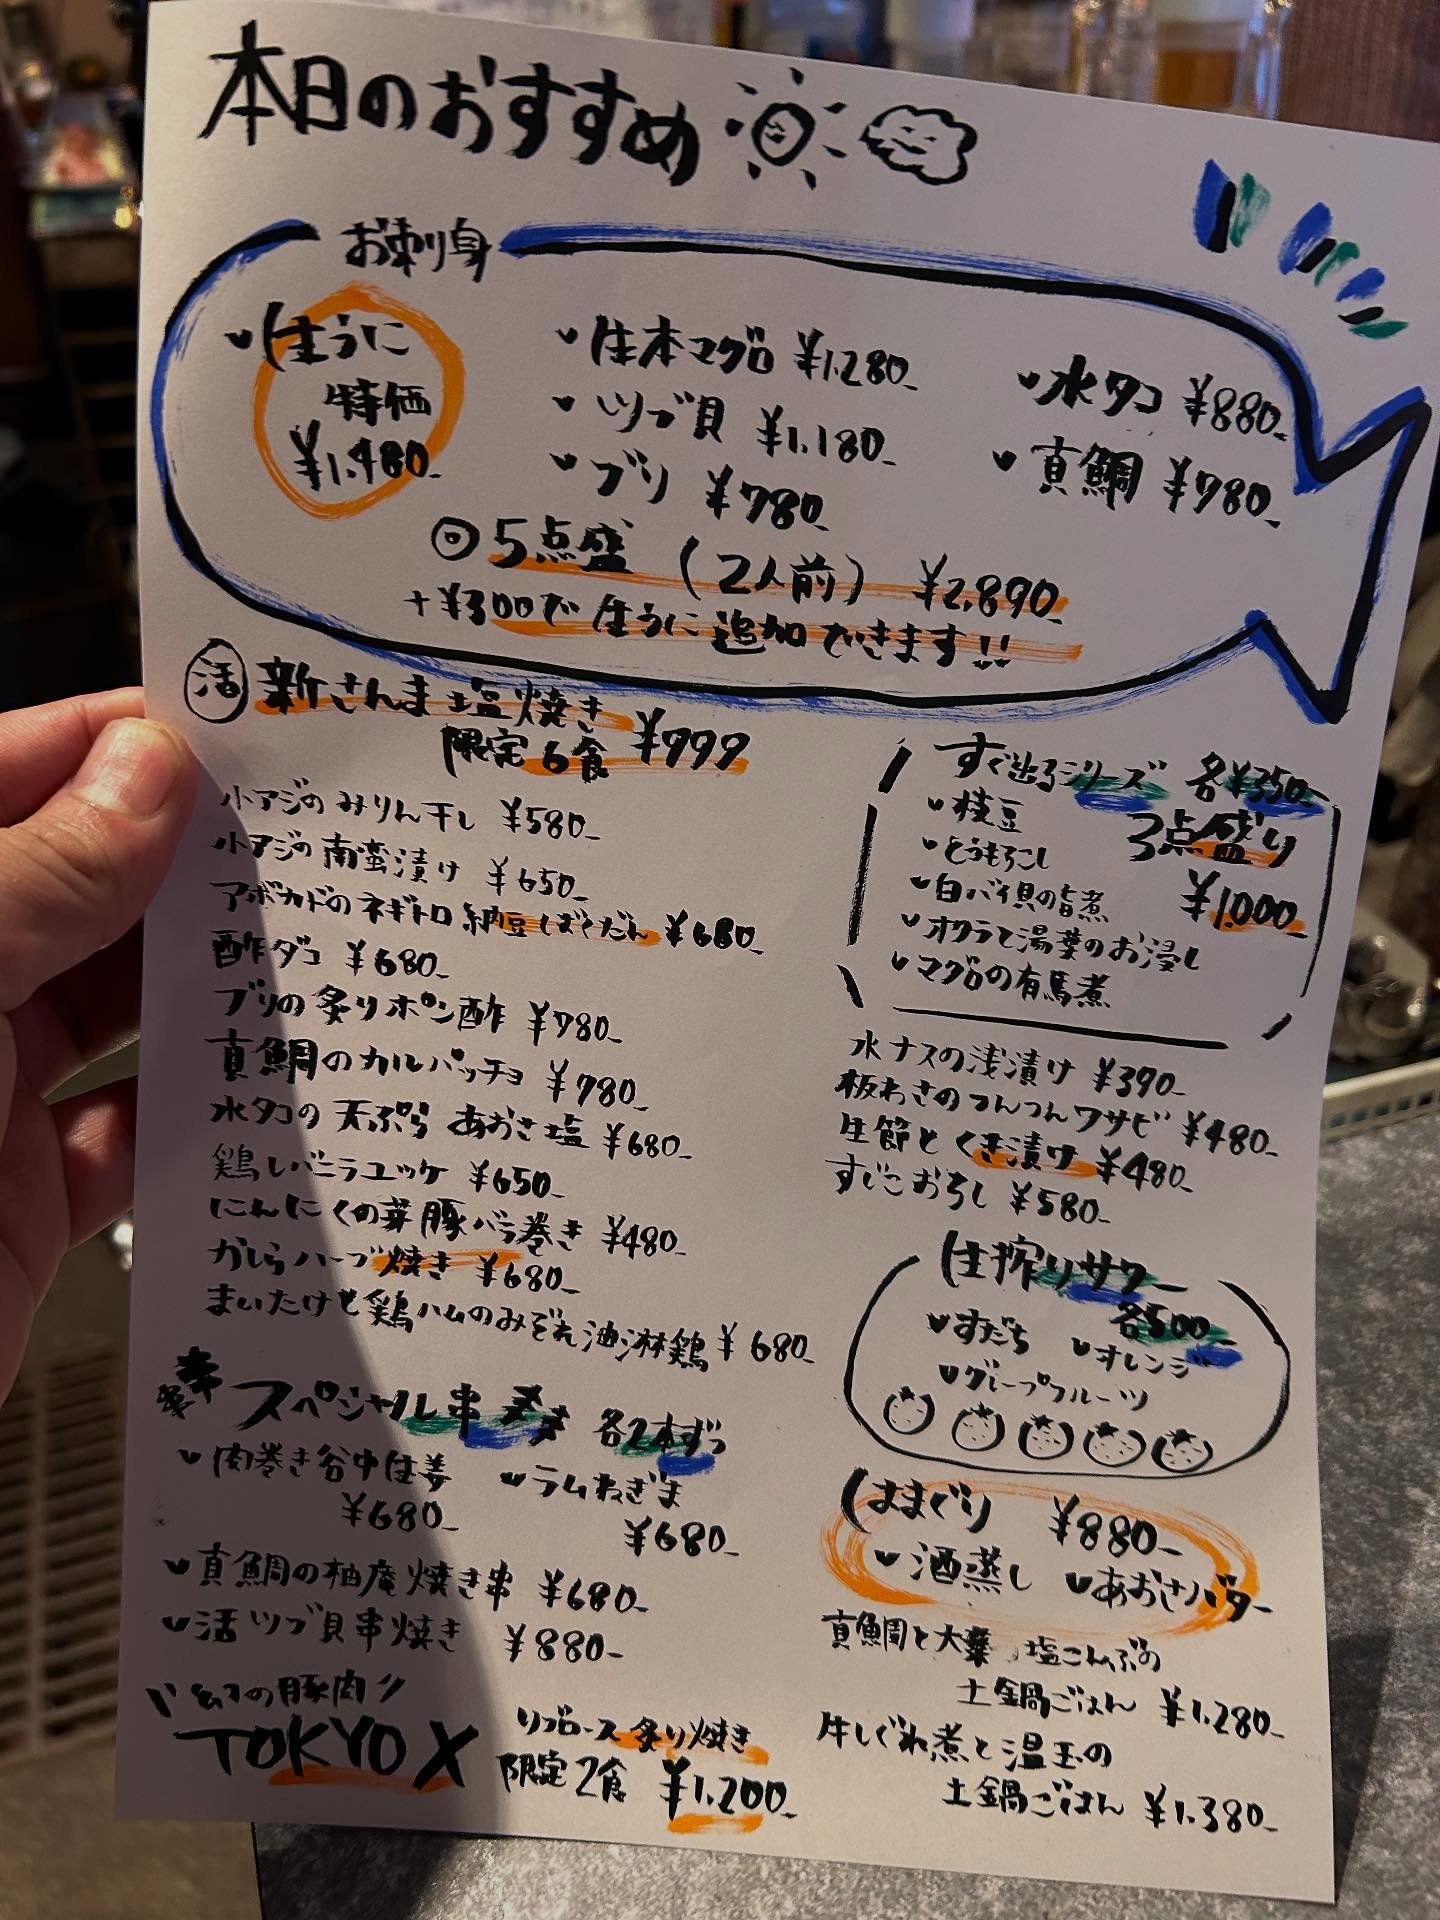 本日のおすすめ
お刺り身
生うに
特価
¥1,480-
生本マグロ ¥1,280-
ツブ貝 ¥1,180-
ブリ ¥780-
水タコ ¥880-
真鯛 ¥780-
◎5点盛 (2人前) ¥2,890-
+¥300で生うに追加できます!!
活 新さんま塩焼き ¥999
限定6食
小アジのみりん干し ¥580-
小アジの南蛮漬け ¥650-
アボカドのネギトロ納豆ばくだん ¥680-
酢ダコ ¥680-
ブリの炙りポン酢 ¥780-
真鯛のカルパッチョ ¥780-
水タコの天ぷら あおさ塩 ¥680-
鶏レバニラユッケ ¥650-
にんにくの芽豚バラ巻き ¥480-
かしらハーブ焼き ¥680-
まいたけと鶏ハムのみぞれ油淋鶏 ¥680-
スペシャル串 各2本ずつ
肉巻き谷中生姜
¥680-
ラムねぎま
¥680-
真鯛の柚庵焼き串 ¥680-
活ツブ貝串焼き ¥880-
幻の豚肉
TOKYO X
リブロース炙り焼き
限定2食 ¥1,200-
すぐ出るシリーズ 各¥350-
枝豆
とうもろこし
白バイ貝の旨煮
オクラと湯葉のお浸し
マグロの有馬煮
3点盛り
¥1,000-
水ナスの浅漬け ¥390-
板わさのつんつんワサビ ¥480-
生節とくき漬け ¥480-
すじこおろし ¥580-
生搾りサワー
各500-
すだち
オレンジ
グレープフルーツ
はまぐり ¥880-
酒蒸し
あおさバター
真鯛と大葉 塩こんぶの
土鍋ごはん ¥1,280-
牛しぐれ煮と温玉の
土鍋ごはん ¥1,380-